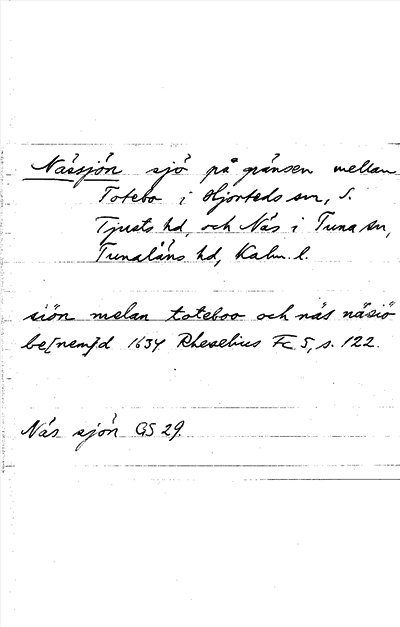 Nässjön sjö på gränsen mellan
Totebo i Hjorteds sn, S.
Tjusts hd, och Näs i Tuna sn,
Tunaläns hd, Kalm. l.
siön melan toteboo och näs näsiö
be[nem]d 1634 Rhezelius Fc 5, s. 122.
Näs sjön GS 29.